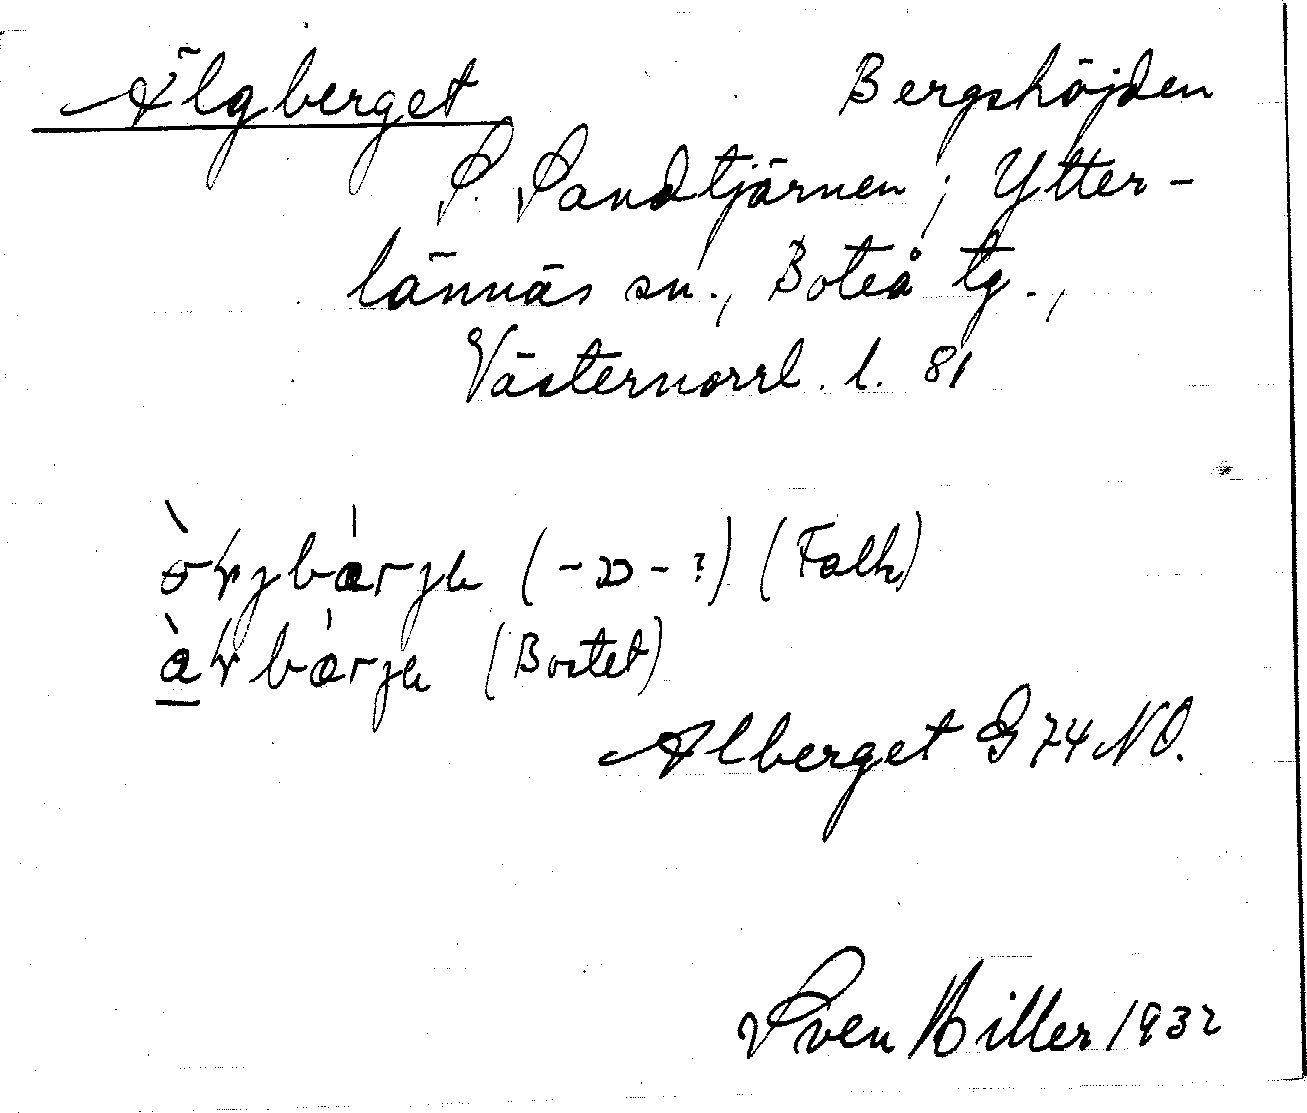 Älgberget Bergshöjden
S. Sandtjärnen; Ytter-
lännäs sn., Boteå tg.,
Västernorrl. l. 81
(-ꭠ-?) (Falk)
(Bostet)
Alberget G 74 NO.
Sven Hiller 1932